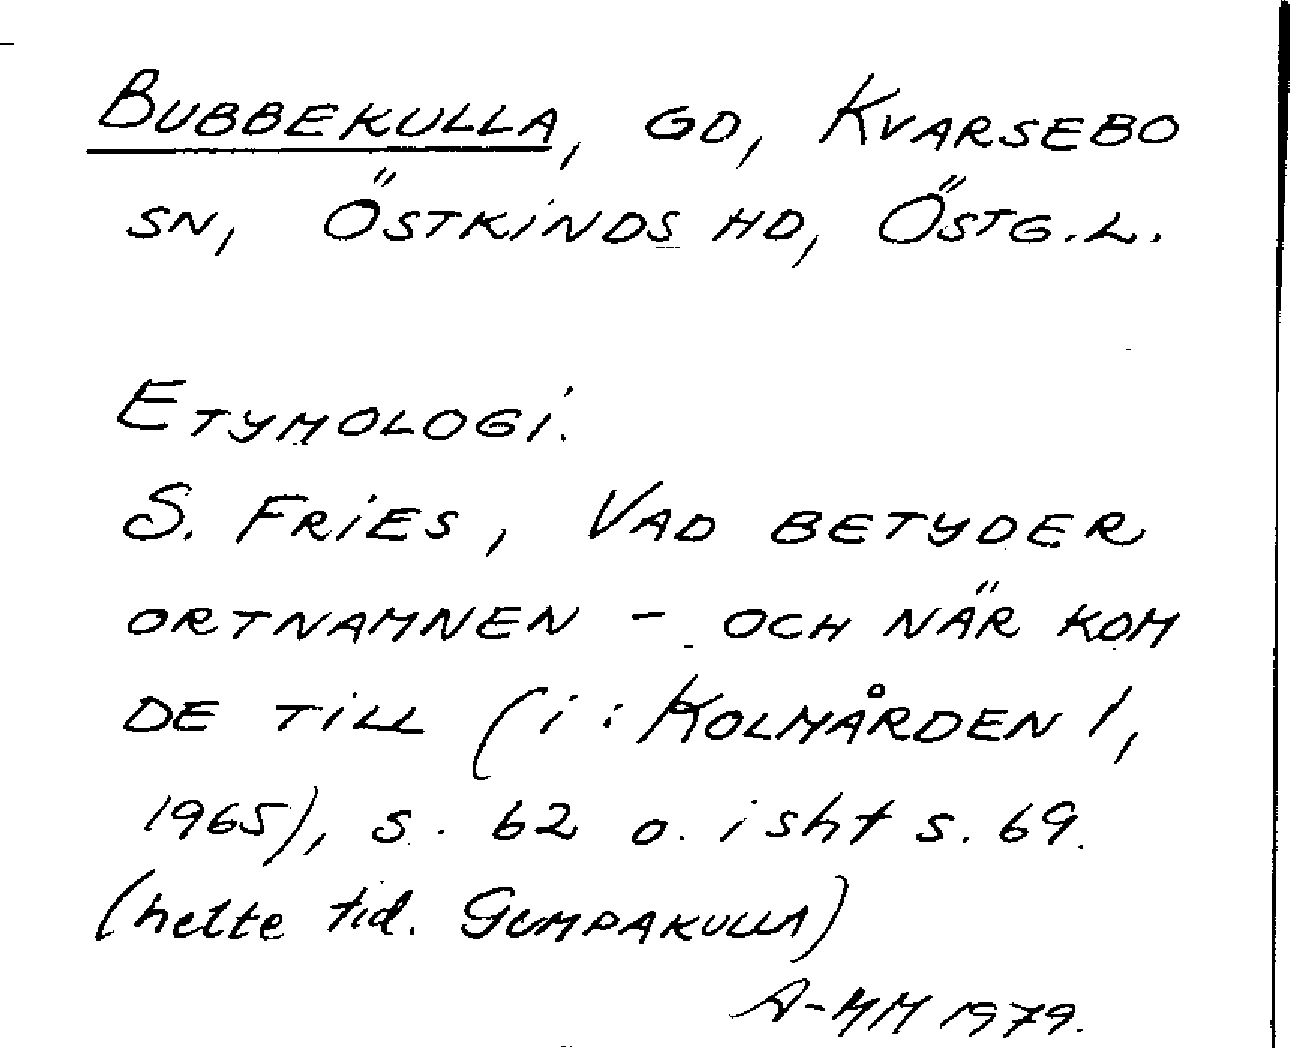 BUBBEKULLA, GD, KVARSEBO
SN, ÖSTKINDS HD, ÖSTG.L.
ETYMOLOGI.
S. FRIES, VAD BETYDER
ORTNAMNEN - OCH NÄR KOM
DE TILL (i: KOLMÅRDEN 1,
1965), s. 62 o. isht s. 69.
(hette tid. GUMPAKULLA)
A-MM 1979.